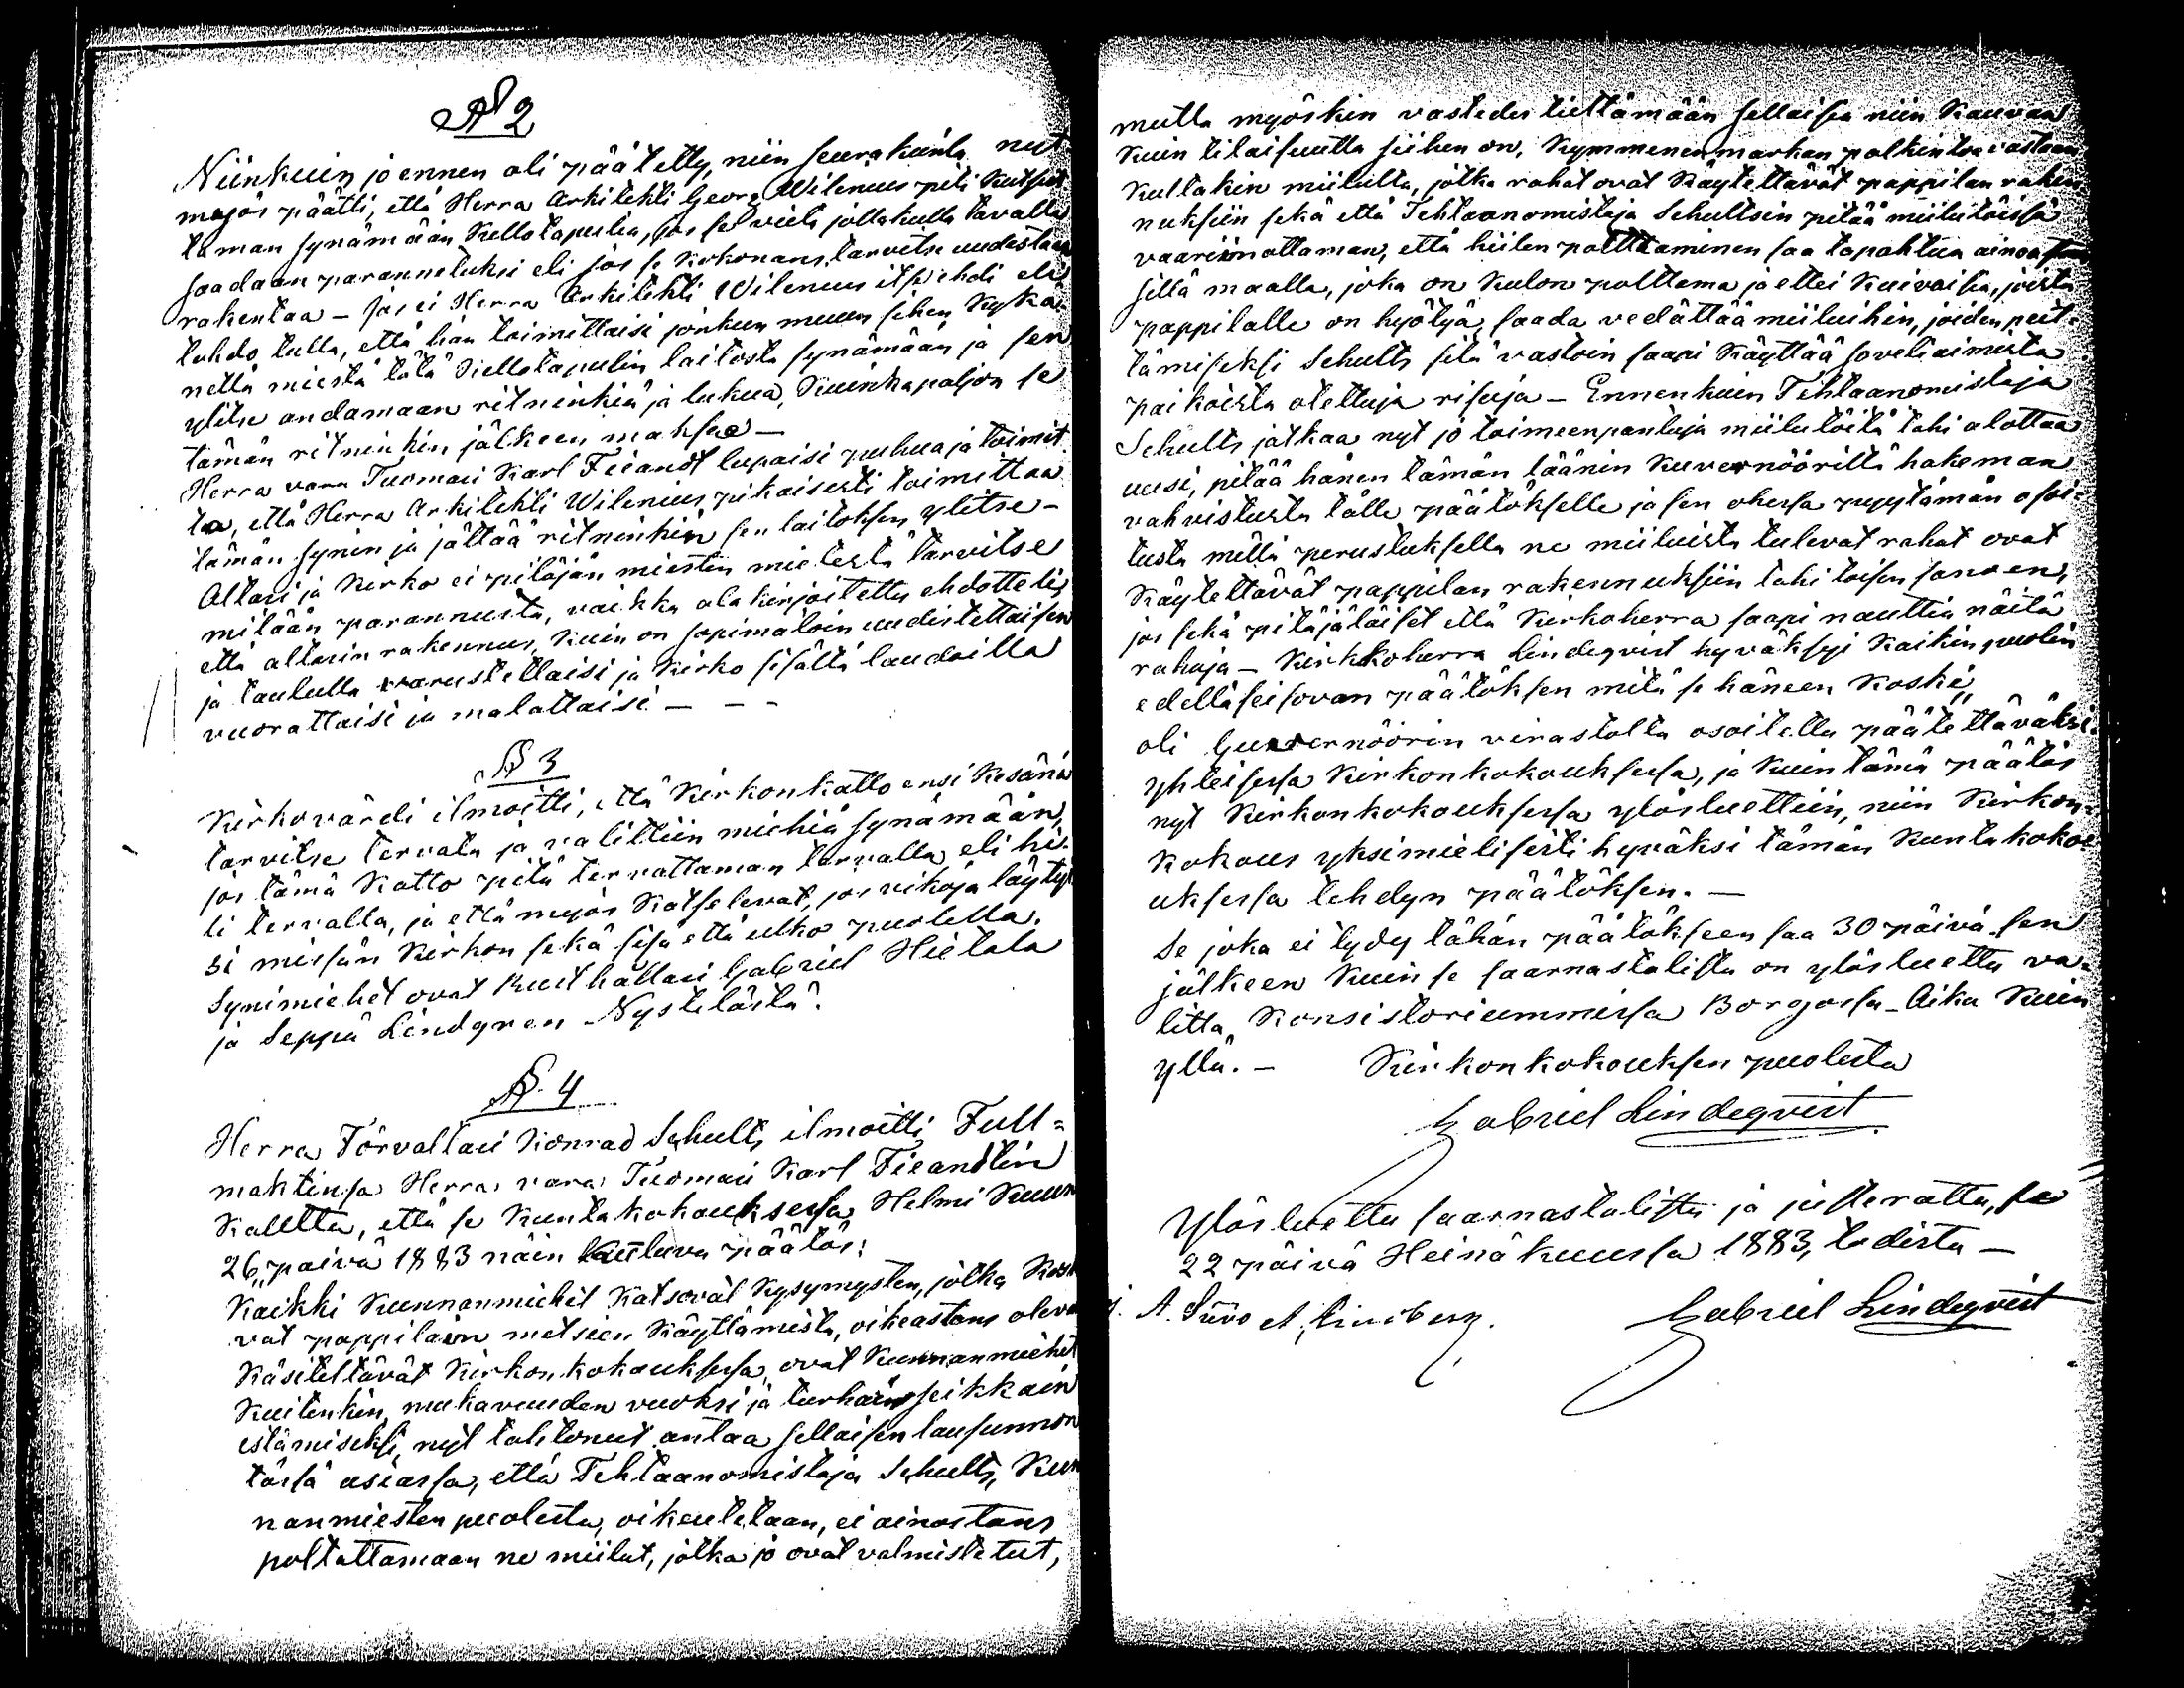 § 2
Niinkuin jo ennen oli päätetty, niin seurakunta nyt
myös päätti, että Herra Arkitehti Georg Wilenius piti kutsut-
taman synämään Kellotapulia, jos se vielä jollakulla tavalla
saadaan paranneluksi eli jos se kokonans tarvitse uudestaan
rakentaa – Jos ei Herra Arkitehti Wilenius itse ehdi eli
tahdo tulla, että hän toimittaisi jonkun muun siihen kykä-
nettä miestä tätä Kellotapulin laitosta synämään ja sen
ylitse andamaan ritninkiä ja lukua, kuinka paljon se
tämän ritninkin jälkeen maksaa –
Herra vara Tuomari Karl Fieandt lupaisi puhua ja toimit-
taa, että Herra Arkitehti Wilenius pikaisesti toimittaa
tämän synin ja jättää ritninkin sen laitoksen ylitse –
Altari ja kirko ei pitäjän miesten mielestä tarvitse
mitään parannusta, vaikka alakirjoitettu ehdotteli,
että altarin rakennus, kuin on sopimatoin uudistettaisin
ja taululla varustettaisi ja kirko sisältä laudoilla
vuorattaisi ja malattaisi – – –
§ 3
Kirkovärdi ilmoitti, että Kirkonkatto ensi kesänä
tarvitse tervata ja valittiin miehiä synämään,
jos tämä Katto pitä tervattaman tervalla eli ki-
li tervalla, ja että myös katselevat, jos vikoja löyty-
si missän Kirkon sekä sisä että ulko puolella.
Synimiehet ovat Rusthållari Gabriel Hietala
ja Seppä Lindgren Nystelästä.
§. 4
Herra Förvaltari Konrad Schults ilmoitti Full-
mahtinsa Herra vara Tuomari Karl Fieandtin
kautta, että se Kuntakokouksessa Helmi Kuun
26 päivä 1883 näin kuuluva päätös:
Kaikki Kunnanmiehet katsovat kysymysten, jotka kosk
vat pappilain metsien käyttämistä, oikeastans oleva
käsiteltävät Kirkonkokouksessa, ovat Kunnanmiehet
kuitenkin, mukavuuden vuoksi ja turhain seikkain
estämiseksi, nyt tahtoneet antaa sellaisen lausunnon
tässä asiassa, että Tehtaanomistaja Schults, Kun
nanmiesten puolesta, oikeutetaan, ei ainoastans
polttattamaan ne miilut, jotka jo ovat valmistetut,
mutta myöskin vastedes tiettämään sellaisia niin kauvan
kuin tilaisuutta siihen on, kymmenen markan palkintoa vastaan
kultakin miilulta, jotka rahat ovat käytettävät pappilan raken-
nuksiin sekä että Tehtaanomistaja Schultsin pitää miilutöissä
vaariinottaman, että hiilen polttaminen saa tapahtua ainoastan
sillä maalla, joka on kulon polttama ja ettei kuivaisia, joista
pappilalle on hyötyä, saada vedättää miiluihin, joiden peit-
tämiseksi Schults sitä vastoin saapi käyttää soveliaimista
paikoista otettuja risuja – Ennenkuin Tehtaanomistaja
Schults jatkaa nyt jo toimeenpantuja miilutöitä tahi alottaa
uusi, pitää hänen tämän läänin kuvernööriltä hakeman
vahvistusta tälle päätökselle ja sen ohessa pyytämän osoi-
tusta millä perustuksella ne miiluista tulevat rahat ovat
käytettävät pappilan rakennuksiin tahi toisin sanoen,
jos sekä pitäjäläiset että Kirkoherra saapi nauttia näitä
rahoja – Kirkkoherra Lindeqvist hyväksyi kaikin puolin
edelläseisovan päätöksen mitä se häneen koski,
oli Guvernöörin virastolta osoitettu päätettäväksi
yhteisessa Kirkonkokouksessa, ja kuin tämä päätös
nyt Kirkonkokouksessa ylösluettiin, niin Kirkon-
kokous yksimielisesti hyväksi tämän Kuntakoko-
uksessa tehdyn päätöksen. –
Se joka ei tydy tähän päätökseen saa 30 päivä sen
jälkeen kuin se saarnastuolista on ylösluettu va-
litta Konsistoriummissa Borgossa – Aika kuin
yllä. – Kirkonkokouksen puolesta
Gabriel Lindeqvist
Ylösluettu saarnastuolista ja justerattu, se
22 päivä Heinäkuussa 1883, todista –
A. Lindberg. Gabriel Lindeqvist